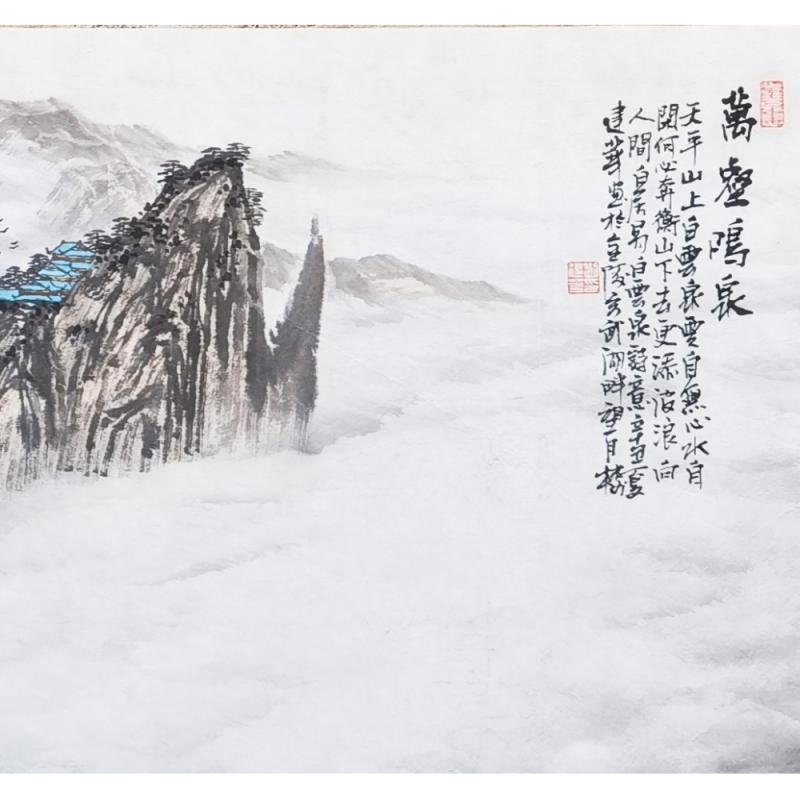 萬壑鳴泉
天平山上白雲泉雲自無心水自
閑何必奔衝山下去更添波浪向
人間白居易白雲泉詩意辛丑夏
建華畫於金陵玄武湖畔望月樓